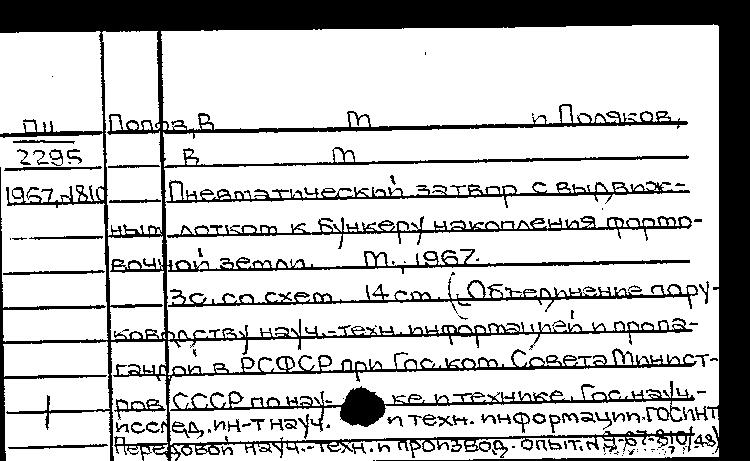 ПЦ Попов, В М и Поляков,
2295 В М
1967, №810 Пневматический затвор с выдвиж-
ным лотком к бункеру накопления формо-
вочной земли. М., 1967.
3с. со схем. 14 см. (Объединение по ру-
ководству науч.-техн. информацией и пропа-
гандой в РСФСР при Гос. ком. Совета Минист-
ров СССР по нау- ке и технике. Гос. науч.-
исслед. ин-т науч. и техн. информации. ГОСИНТИ
Передовой науч.-техн. и производ. опыт. №9-67-810/48)